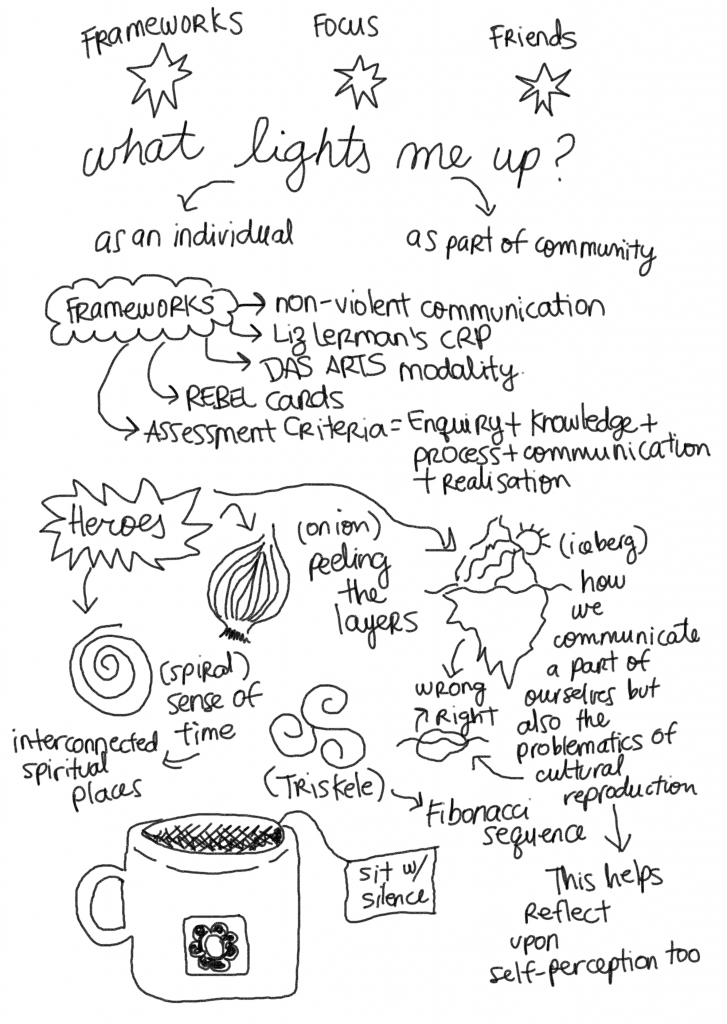 FRAMEWORKS
FOCUS
FRIENDS
what lights me up?
as an individual
as part of community
FRAMEWORKS
non-violent communication
Liz Lerman's CRP
DAS ARTS modality.
REBEL cards
ASSESSMENT CRITERIA = ENQUIRY + Knowledge +
process + communication
+ Realisation
Heroes
(onion)
peeling
the
layers
(iceberg)
how
we
communicate
a part of
ourselves but
also the
problematics of
cultural
reproduction
WRONG
Right
(spiral)
sense of
time
interconnected
spiritual
places
(TRISKELE)
Fibonacci
sequence
This helps
Reflect
upon
self-perception too
sit w/
silence